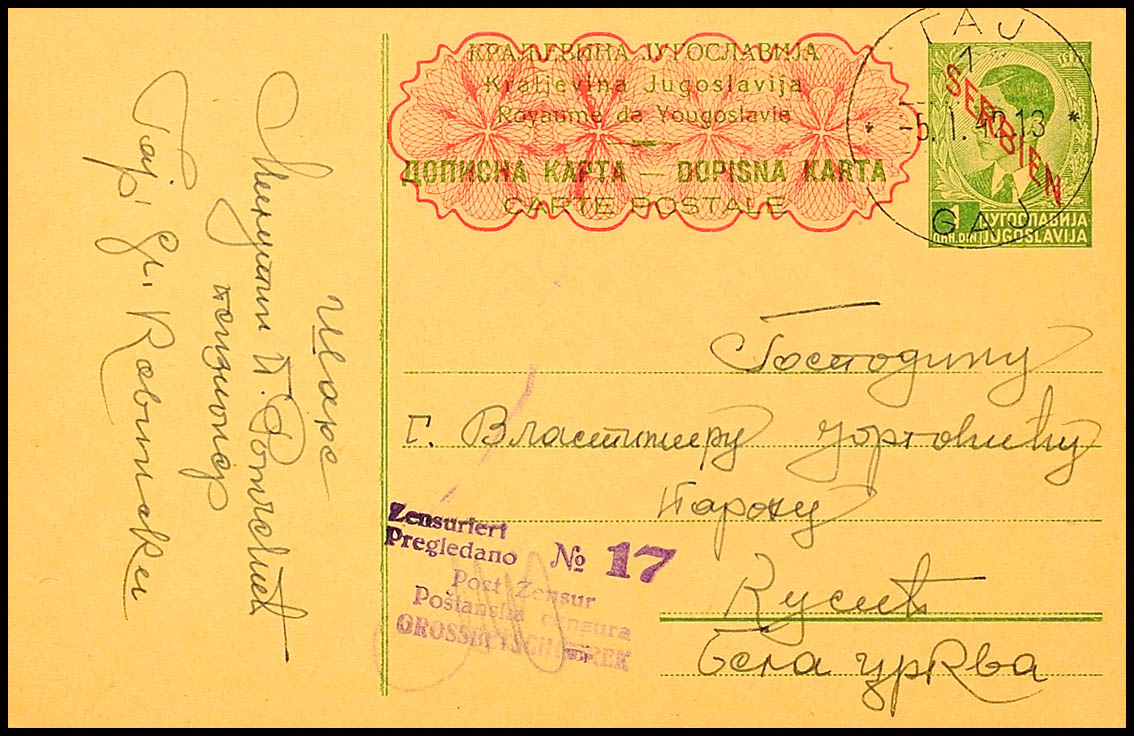 КРАЉЕВИНА ЈУГОСЛАВИЈА
Kraljevina Jugoslavija
Royaume de Yougoslavie
ДОПИСНА КАРТА — DOPISNA KARTA
CARTE POSTALE
ГАЈ
1
* -5.I.42 13 *
GAJ
SERBIEN
1
ЈУГОСЛАВИЈА
DIN JUGOSLAVIJA
Господину
г. Властимиру
Пароху
Кусић
Бела црква
Zensuriert
Pregledano № 17
Post Zensur
Poštanska cenzura
GROSSBETSCHKEREK
Шаље
Милутин П.
пензионер
Гај